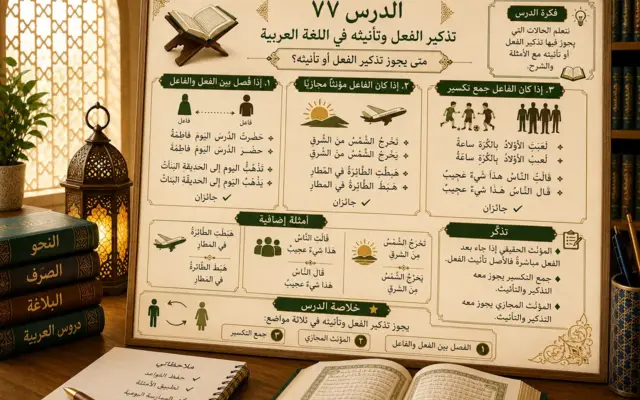 الدرس ٧٧
تذكير الفعل وتأنيثه في اللغة العربية
متى يجوز تذكير الفعل أو تأنيثه؟
فكرة الدرس
نتعلم الحالات التي
يجوز فيها تذكير الفعل
أو تأنيثه مع الأمثلة
والشرح.
١. إذا فصل بين الفعل والفاعل
فاعل
فاعل
حَضَرَتْ الدَّرسَ اليَومَ فاطِمَةُ
حضر الدَّرسَ اليَومَ فَاطِمَةُ
تَذهَبُ اليوم إلى الحديقةِ البَناتُ
يَذهَبُ اليوم إلى الحديقةِ البَناتُ
جائزان ✓
٢. إذا كان الفاعل مؤنثًا مجازيًا
تَخرجُ الشَّمْسُ مِنَ الشَّرقِ
يَخرجُ الشَّمْسُ مِنَ الشَّرقِ
هَبطَتِ الطَّائِرَةُ في المطارِ
هَبَطَ الطَّائِرةُ في المطارِ
جائزان ✓
٣. إذا كان الفاعل جمع تكسير
لَعِبَتِ الأَوْلادُ بالكُرَةِ ساعةً
لَعِبَ الأَوْلادُ بالكُرَةِ ساعَةً
قالَتْ النَّاسُ هذا شَيءٌ عَجِيبٌ
قال النَّاسُ هذا شَيءٌ عَجيبٌ
جائزان ✓
أمثلة إضافية
هَبَطَتِ الطَّائِرَةُ
في المَطارِ
هَبَطَ الطَّائِرَةُ
في المَطارِ
قالَتِ النَّاسُ
هَذا شَيءٌ عَجيبٌ
قالَ النَّاسُ
هَذا شَيءٌ عَجيبٌ
تَخرُجُ الشَّمْسُ
مِنَ الشَّرقِ
يَخرُجُ الشَّمْسُ
مِنَ الشَّرقِ
تذكّر
المؤنث الحقيقي إذا جاء بعد
الفعل مباشرةً فالأصل تأنيث الفعل.
جمع التكسير يجوز معه
التذكير والتأنيث.
المؤنث المجازي يجوز معه
التذكير والتأنيث.
خلاصة الدرس
يجوز تذكير الفعل وتأنيثه في ثلاثة مواضع:
١ الفصل بين الفعل والفاعل
٢ المؤنث المجازي
٣ جمع التكسير
النحو
الصرف
البلاغة
دروس العربية
ملاحظاتي
حفظ القواعد ✓
تطبيق الأمثلة ✓
الممارسة اليومية